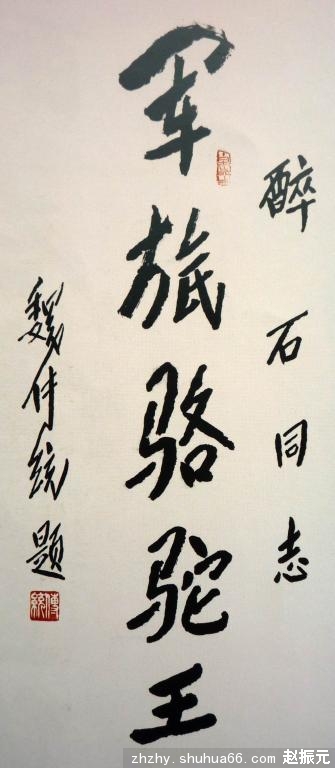 醉石同志
军旅骆驼王
魏传统题
傳統
zhzhy.shuhua66.com 赵振元